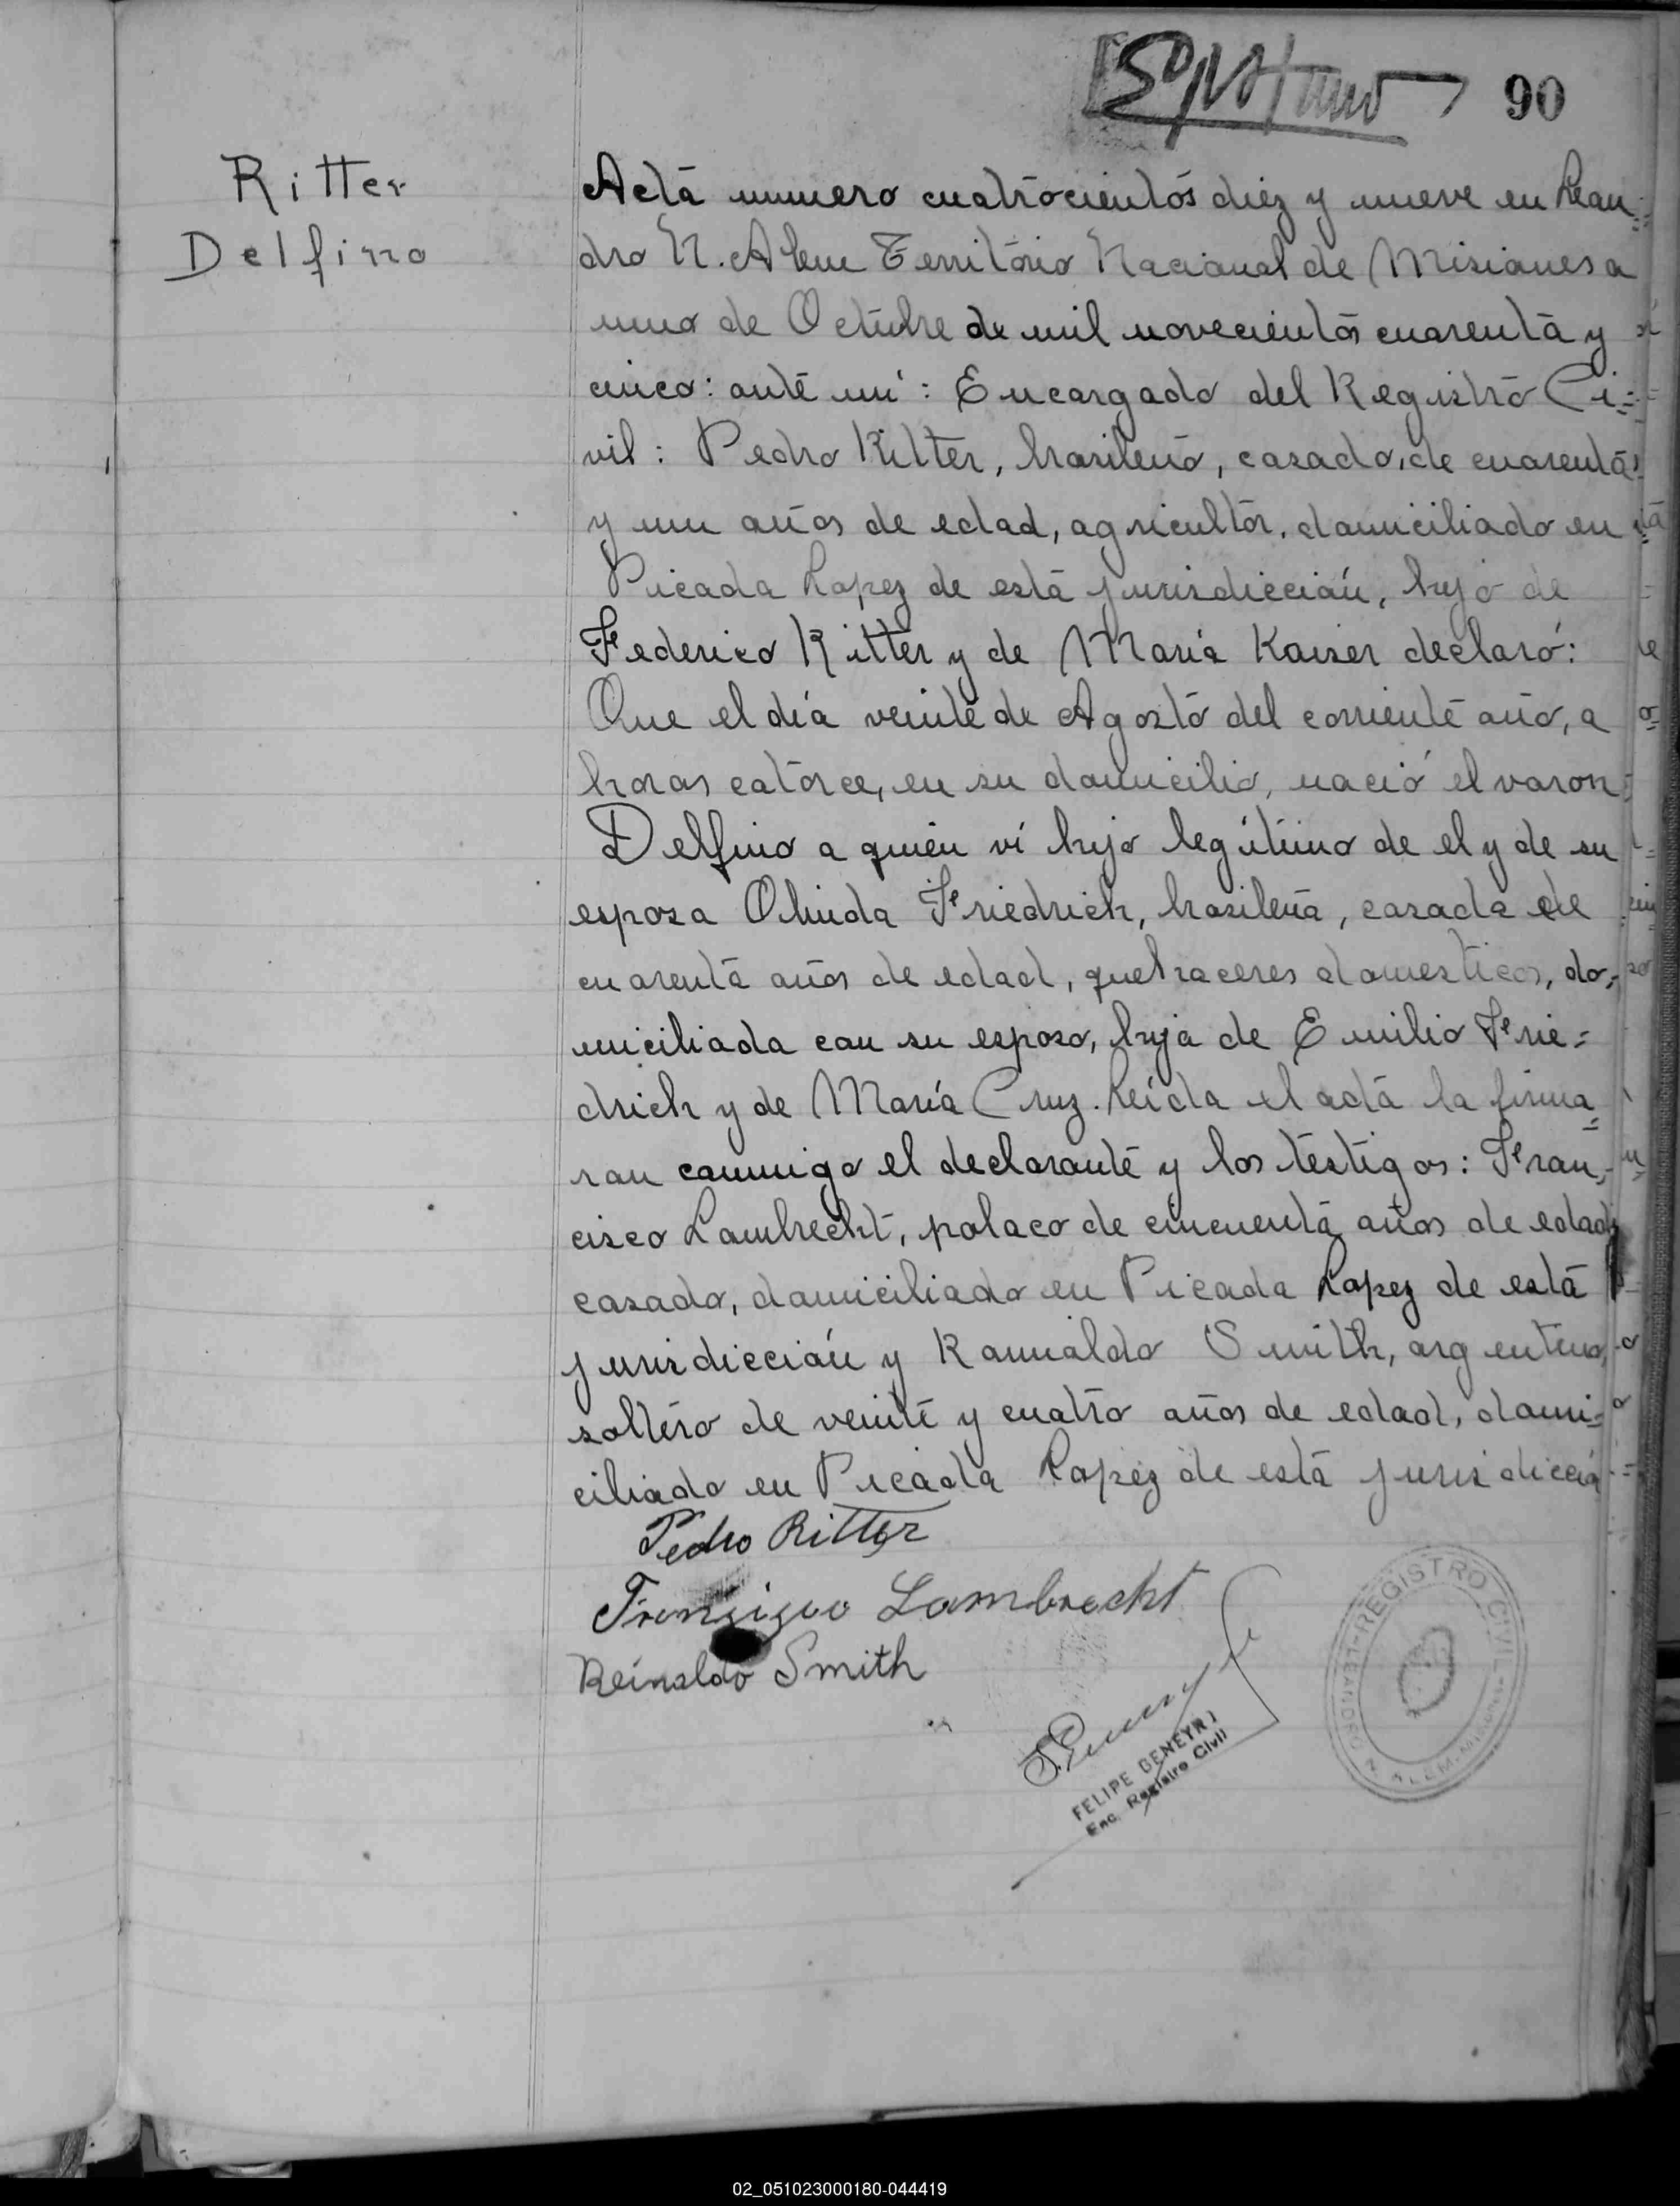 90
Ritter
Delfino
Acta numero cuatrocientos diez y nueve en Lean=
dro N. Alem Território Nacional de Misiones a
uno de Octubre de mil novecientos cuarenta y
cinco: ante mi: Encargado del Registro Ci=
vil: Pedro Ritter, brasileño, casado, de cuarenta
y un años de edad, agricultor, domiciliado en
Picada Lopez de esta jurisdicción, hijo de
Federico Ritter y de María Kaiser declaró:
Que el día veinte de Agosto del corriente año, a
horas catorce, en su domicilio, nació el varon
Delfino a quien ví hijo legítimo de el y de su
esposa Olinda Friedrich, brasileña, casada de
cuarenta años de edad, quehaceres domesticos, do=
miciliada con su esposo, hija de Emilio Frie=
drich y de María Cruz. Leída el acta la firma=
ran conmigo el declarante y los testigos: Fran=
cisco Lambrecht, polaco de cincuenta años de edad
casado, domiciliado en Picada Lopez de esta
jurisdicción y Romualdo Smith, argentino,
soltero de veinte y cuatro años de edad, domi=
ciliado en Picada Lopez de esta jurisdicció
Pedro Ritter
Francisco Lambrecht
Reinaldo Smith
FELIPE GENEYRI
Enc. Registro Civil
REGISTRO CIVIL
LEANDRO N. ALEM - Misiones
02_051023000180-044419